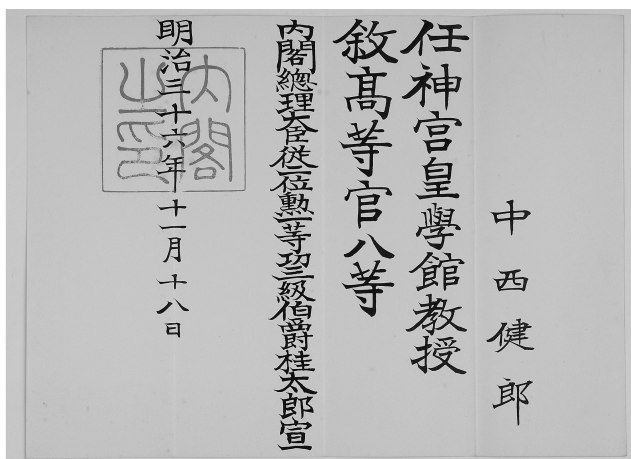 中西健郎
任神宮皇學館教授
敘髙等官八等
内閣總理大臣從二位勲一等功三級伯爵桂太郎宣
明治三十六年十一月十八日
内閣
之印